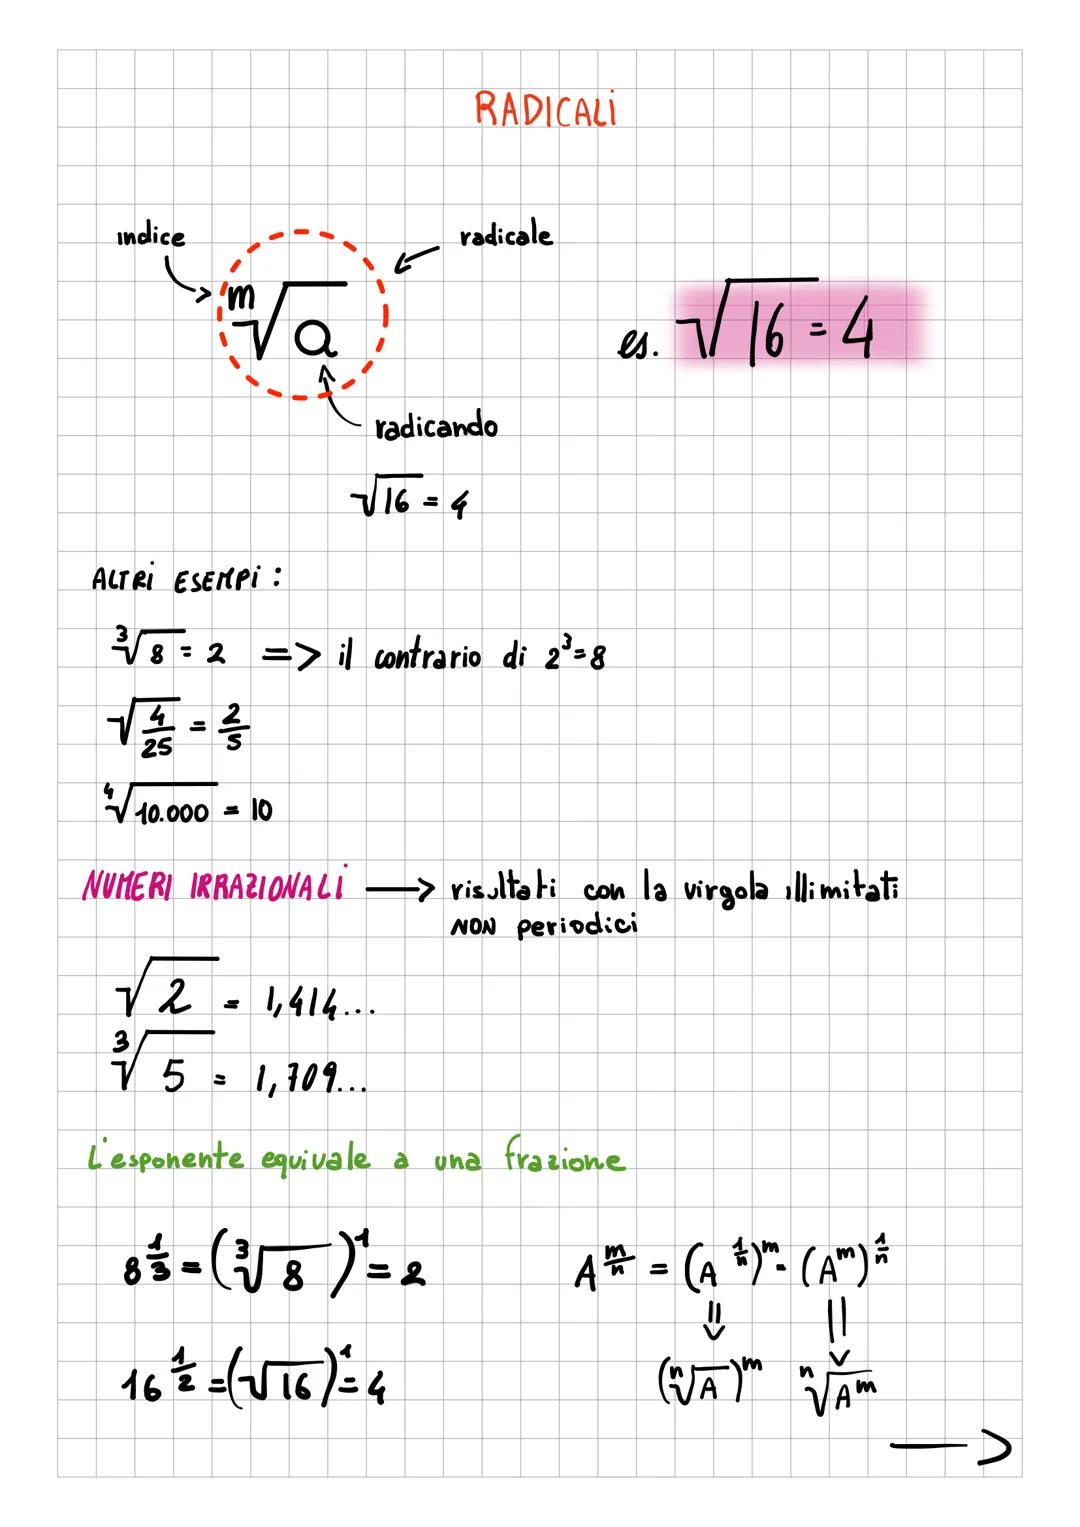 RADICALI
indice
radicale
ᵐ√a
radicando
es. √16 = 4
√16 = 4
ALTRI ESEMPI :
³√8 = 2 => il contrario di 2³=8
√(4/25) = 2/5
⁴√10.000 = 10
NUMERI IRRAZIONALI → risultati con la virgola illimitati
NON periodici
√2 = 1,414...
³√5 = 1,709...
L'esponente equivale a una frazione
8^(1/3) = (³√8)¹ = 2
A^(m/n) = (A^(1/n))^m = (A^m)^(1/n)
16^(1/2) = (√16)¹ = 4
(ⁿ√A)^m ⁿ√A^m